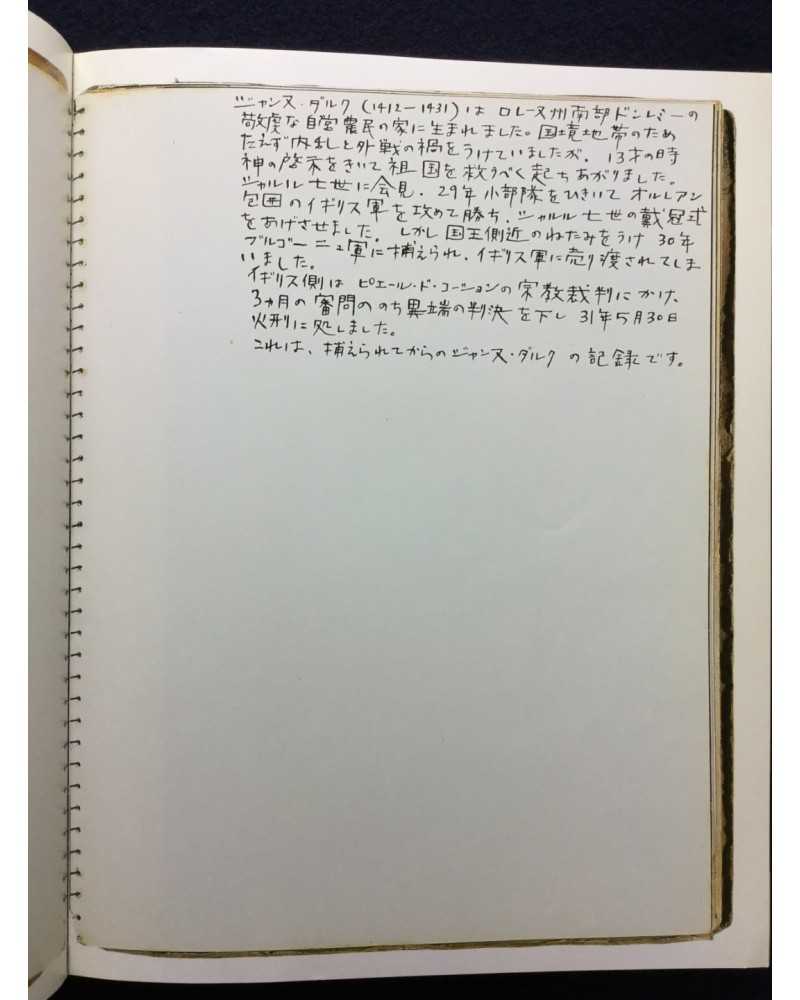 ジャンヌ・ダルク(1412－1431)は ロレーヌ州南部ドンレミーの
敬虔な自営農民の家に生まれました。国境地帯のため
たえず内乱と外戦の禍をうけていましたが、13才の時
神の啓示をきいて祖国を救うべく起ちあがりました。
シャルル七世に会見、29年小部隊をひきいてオルレアン
包囲のイギリス軍を攻めて勝ち、シャルル七世の戴冠式
をあげさせました。しかし国王側近のねたみをうけ30年
ブルゴーニュ軍に捕えられ、イギリス軍に売り渡されてしま
いました。
イギリス側は ピエール・ド・コーションの宗教裁判にかけ、
3ヵ月の審問ののち異端の判決を下し 31年5月30日
火刑に処しました。
これは、捕えられてからのジャンヌ・ダルクの記録です。